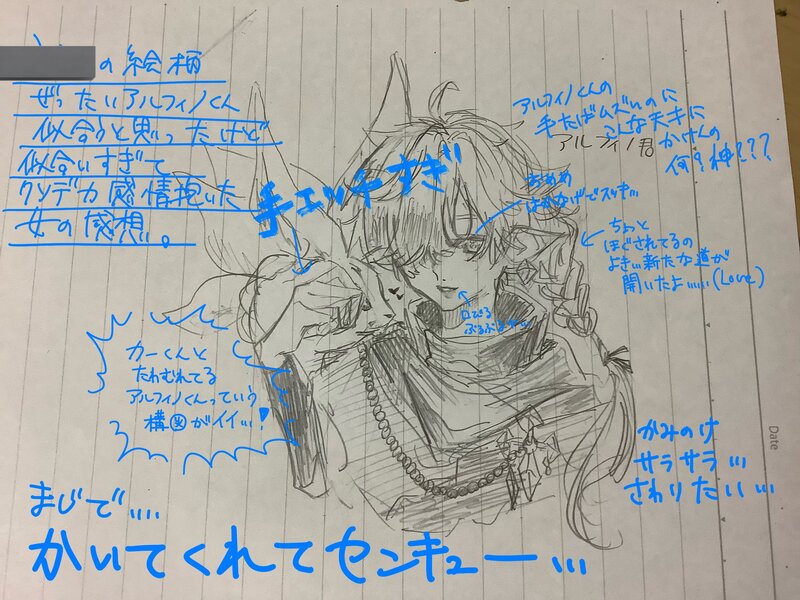 の絵柄
ぜったいアルフィノくん
似合うと思ったけど
似合いすぎて
クソデカ感情抱いた
女の感想。
手エッチすぎ
アルフィノくんの
手たげムズいのに
こんな天才に
かけんの
何?神???
アルフィノ君
おめめ
ちょっと
ほぐされてるの
よきぃ新たな道が
開いたよぃぃぃ(Love)
口びる
ぷるぷる
カーくんと
たわむれてる
アルフィノくんっていう
構図がイイ…!
かみのけ
サラサラ…
さわりたい…
まじで....
かいてくれてセンキュー…
Date